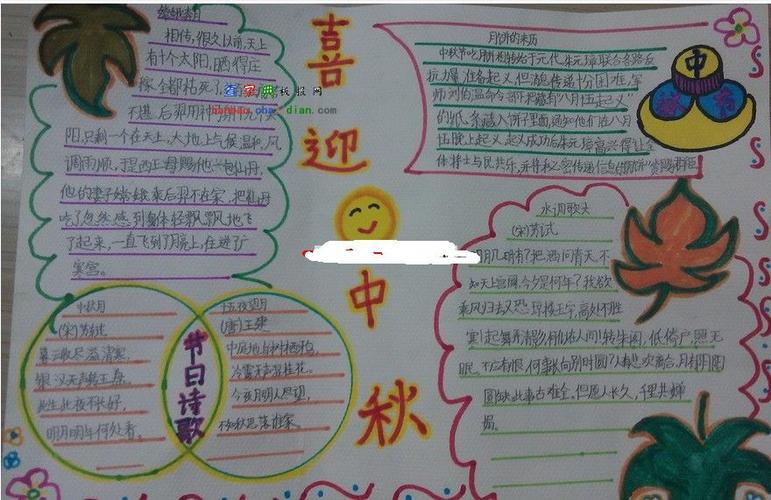 嫦娥奔月
相传，很久以前，天上
有十个太阳，晒得庄
稼全都枯死了，
不堪。后羿用神
阳，只剩一个在天上，大地上气候温和，风
调雨顺，于是西王母赐他一包仙丹，
他的妻子嫦娥来后羿不在家，把
吃了忽然感到身体轻飘飘地飞
了起来，一直飞到了月亮上，住进了广
寒宫。
喜
迎
中
秋
月饼的来历
中秋节吃月饼相传始于元代，朱元璋联合各路反
抗力量准备起义，但消息传递十分困难，军
师刘伯温命令部下把藏有"八月十五起义"
的纸条藏入饼子里面通知他们在八月
十五晚上起义，起义成功后朱元璋高兴得让全
体将士与民共乐，并将秘密传递信息的月饼
中
秋
节
水调歌头
(宋)苏试
明月几时有？把酒问青天，不
知天上宫阙，今夕是何年？我欲
乘风归去，又恐琼楼玉宇，高处不胜
寒！起舞弄清影，何似在人间！转朱阁，低倚户，照无
眠，不应有恨，何事长向别时圆？人有悲欢离合，月有阴晴
圆缺，此事古难全。但愿人长久，千里共婵
娟。
中秋月
(宋)苏轼
暮云收尽溢清寒，
银汉无声转玉盘。
此生此夜不长好，
明月明年何处看。
节日诗歌
十五夜望月
(唐)王建
中庭地白树栖鸦，
冷露无声湿桂花。
今夜月明人尽望，
不知秋思落谁家。